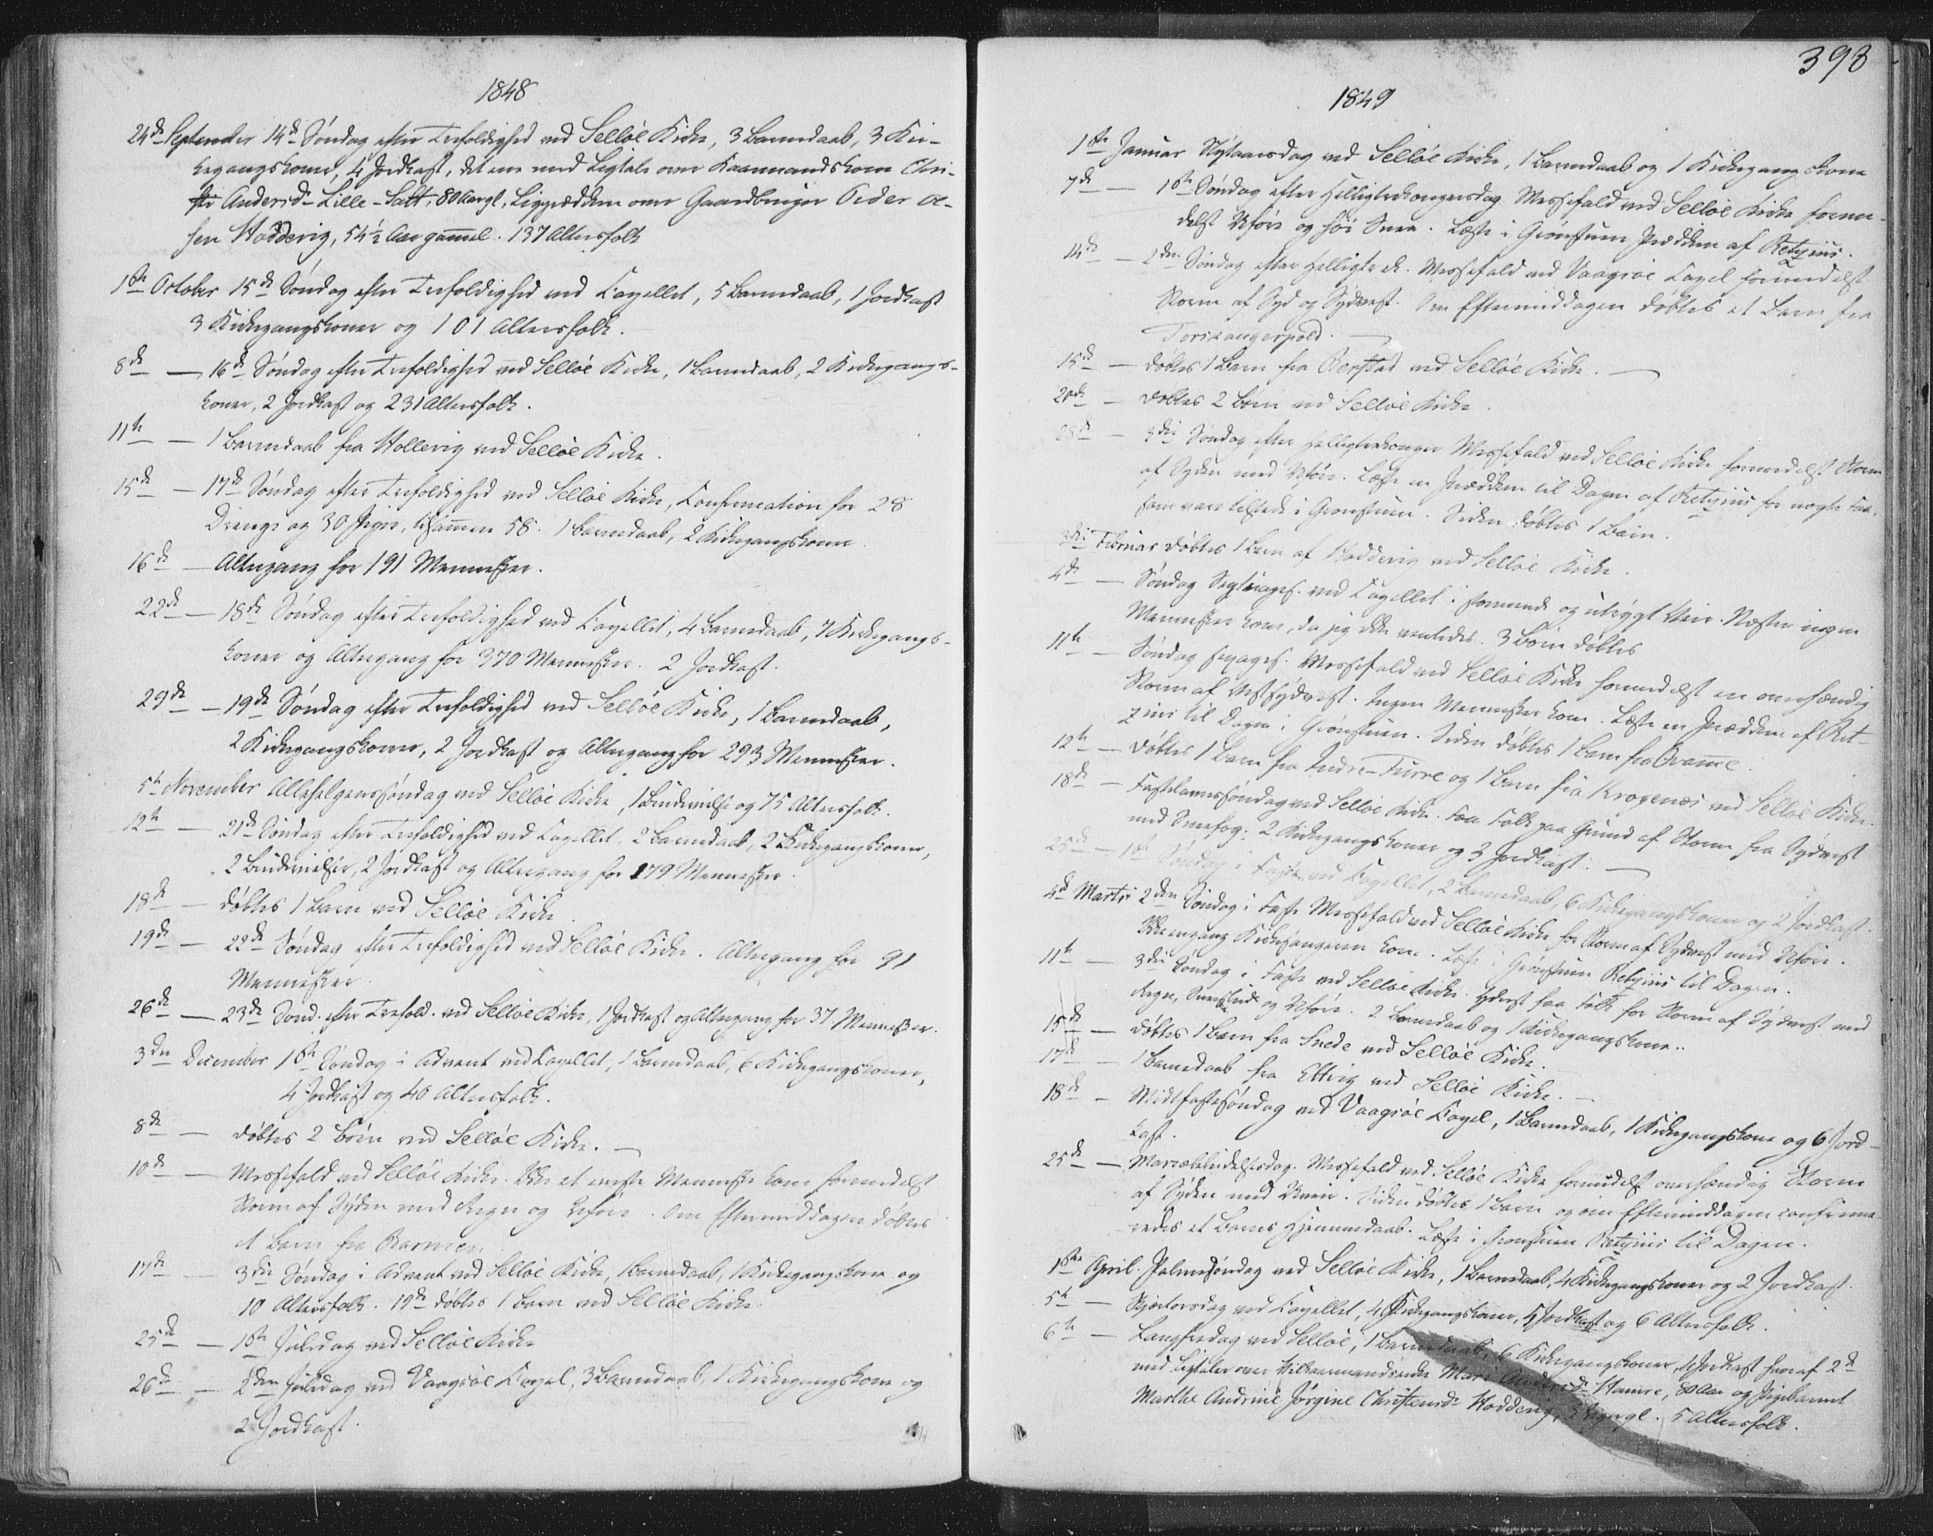 1848
24de September 14de Søndag efter Trefoldighed ved Selløe Kirke, 3 Barnedaab, 3 Kir-
kegangskoner, 4 Jordkast, det ene med Ligtale over Kaarmandskone Chri-
Andersd. Lille-Satt, 80 Aar gl, Ligprædiken over Gaardbruger Peder Ol-
sen Hodderig, 54½ Aar gammel. 137 Altersfolk
1ste October 15de Søndag efter Trefoldighed ved Capellet, 5 Barnedaab, 1 Jordkast
3 Kirkegangskoner og 101 Altersfolk.
8de — 16de Søndag efter Trefoldighed ved Selløe Kirke, 1 Barnedaab, 2 Kirkegangs-
koner, 2 Jordkast og 231 Altersfolk.
11te — 1 Barnedaab fra Hollevig ved Selløe Kirke.
15de — 17de Søndag efter Trefoldighed ved Selløe Kirke, Confirmation for 28
Drenge og 30 Piger, tilsammen 58. 1 Barnedaab, 2 Kirkegangskoner
16de — Altergang for 191 Mennesker.
22de — 18de Søndag efter Trefoldighed ved Capellet, 4 Barnedaab, 7 Kirkegangs-
koner og Altergang for 370 Mennesker. 2 Jordkast.
29de — 19de Søndag efter Trefoldighed ved Selløe Kirke, 1 Barnedaab,
2 Kirkegangskoner, 2 Jordkast og Altergang for 293 Mennesker.
5te November Allehelgenssøndag ved Selløe Kirke, 1 Brudevielse og 75 Altersfolk.
12te — 21de Søndag efter Trefoldighed ved Capellet, 2 Barnedaab, 2 Kirkegangskoner,
2 Brudevielser, 2 Jordkast og Altergang for 179 Mennesker.
18de — døbtes 1 Barn ved Selløe Kirke
19de — 22de Søndag efter Trefoldighed ved Selløe Kirke. Altergang for 91
Mennesker.
26de — 23de Sønd. efter Trefold. ved Selløe Kirke, 1 Jordkast og Altergang for 37 Mennesker.
3die December 1ste Søndag i Advent ved Capellet, 1 Barnedaab, 6 Kirkegangskoner,
4 Jordkast og 40 Altersfolk.
8de — døbtes 2 Børn ved Selløe Kirke. —
10de — Messefald ved Selløe Kirke. Ikke et eneste Menneske kom formedelst
Storm af Syden med Regn og Uføre. Om Eftermiddagen døbtes
et Barn fra
17de — 3die Søndag i Advent ved Selløe Kirke, 1 Barnedaab, 1 Kirkegangskone og
10 Altersfolk. 19de døbtes 1 Barn ved Selløe Kirke.
25de — 1ste Juledag ved Selløe Kirke
26de — 2den Juledag ved Vaagsøe Capel, 3 Barnedaab, 1 Kirkegangskone og
2 Jordkast.
393
1849
1ste Januar Nytaarsdag ved Selløe Kirke, 1 Barnedaab og 1 Kirkegangskone
7de — 1ste Søndag efter Helligtrekongersdag Messefald ved Selløe Kirke forme-
delst Uføre og høi Snee. Læste i Grønstuen Prædiken af Retzius.
14de — 2den Søndag efter Helligtrek. Messefald ved Vaagsøe Capel formedelst
Storm af Syd og Sydvest. Om Eftermiddagen døbtes et Barn fra
Torskangerpold. —
15de — døbtes 1 Barn fra Berstad ved Selløe Kirke. —
20de — døbtes 2 Børn ved Selløe Kirke.
28de — 3die Søndag efter Helligtrekonger Messefald ved Selløe Kirke formedelst Storm
af Syden med Uføre. Læste en Prædiken til Dagen af Retzius for nogle Faa
som vare tilstede i Grønstuen. Siden døbtes 1 Barn.
3die Februar døbtes 1 Barn af Hodderig ved Selløe Kirke.
4de — Søndag Septuages. ved Capellet i stormende og utrygt Veir. Næsten ingen
Mennesker kom, da jeg ikke ventedes. 3 Børn døbtes
11te — Søndag sexages. Messefald ved Selløe Kirke formedelst en overhændig
Storm af Vestsydvest. Ingen Mennesker kom. Læste en Prædiken af Ret-
zius til Dagen i Grønstuen. Siden døbtes 1 Barn fra Qvamme.
12te — døbtes 1 Barn fra Indre-Furre og 1 Barn fra Krogenæs ved Selløe Kirke.
18de — Fastelavnssøndag ved Selløe Kirke. Faa Folk paa Grund af Storm fra Sydvest
med Sneefog. 2 Kirkegangskoner og 3 Jordkast. —
25de — 1ste Søndag i Faste ved Capellet, 2 Barnedaab, 6 Kirkegangskoner og 2 Jordkast.
4de Marts 2den Søndag i Faste Messefald ved Selløe Kirke for Storm af Sydvest med Uføre.
Ikke engang Kirkesangeren kom. Læste i Grønstuen Retzius til Dagen.
11te — 3die Søndag i Faste ved Selløe Kirke. Yderst faa Folk for Storm af Sydvest med
Regn, Sneeslud og Uføre. 2 Barnedaab og 1 Kirkegangskone..
15de — døbtes 1 Barn fra Snede ved Selløe Kirke.
17de — 1 Barnedaab fra Eltvig ved Selløe Kirke. —
18de — Midtfastesøndag ved Vaagsøe Capel, 1 Barnedaab, 1 Kirkegangskone og 6 Jord-
kast.
25de — Mariæbebudelsesdag. Messefald ved Selløe Kirke formedelst overhændig Storm
af Syden med Uveir. Siden døbtes 1 Barn og om Eftermiddagen confirme-
redes et Barns Hjemmedaab. Læste i Grønstuen Retzius til Dagen.
1ste April. Palmesøndag ved Selløe Kirke, 1 Barnedaab, 4 Kirkegangskoner og 2 Jordkast.
5te — Skjærtorsdag ved Capellet, 4 Kirkegangskoner, 4 Jordkast og 6 Altersfolk.
6te — Langfredag ved Selløe, 1 Barnedaab, 6 Kirkegangskoner, 4 Jordkast hvoraf 2de
med Ligtaler over Vilkaarmandsenke Mari Andersd. Hamre, 80 Aar og Pigebarnet
Marthe Andrine Jørgine Christensd. Hodderig, gl. 5 Altersfolk.